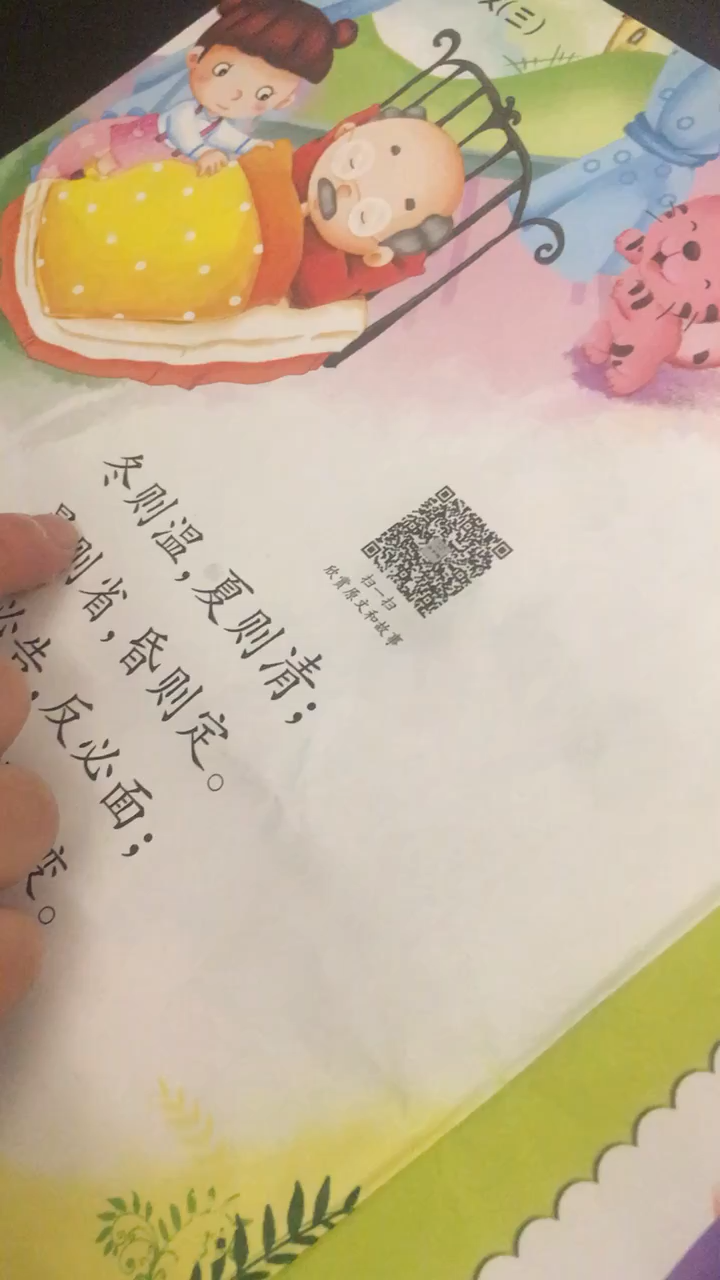 (三)
冬则温，夏则清；
则省，昏则定。
必告，反必面；
变。
扫一扫
欣赏原文和故事